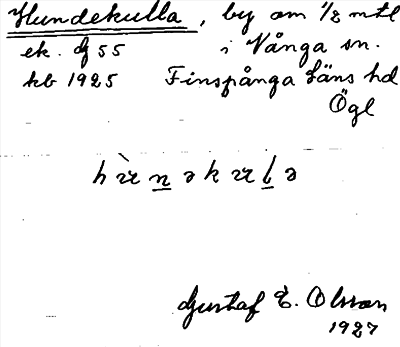 Hundekulla, by om 1/2 mtl
ek. df 55 i Vånga sn.
kb 1925 Finspånga läns hd
Ögl
Gustaf E. Olsson
1927